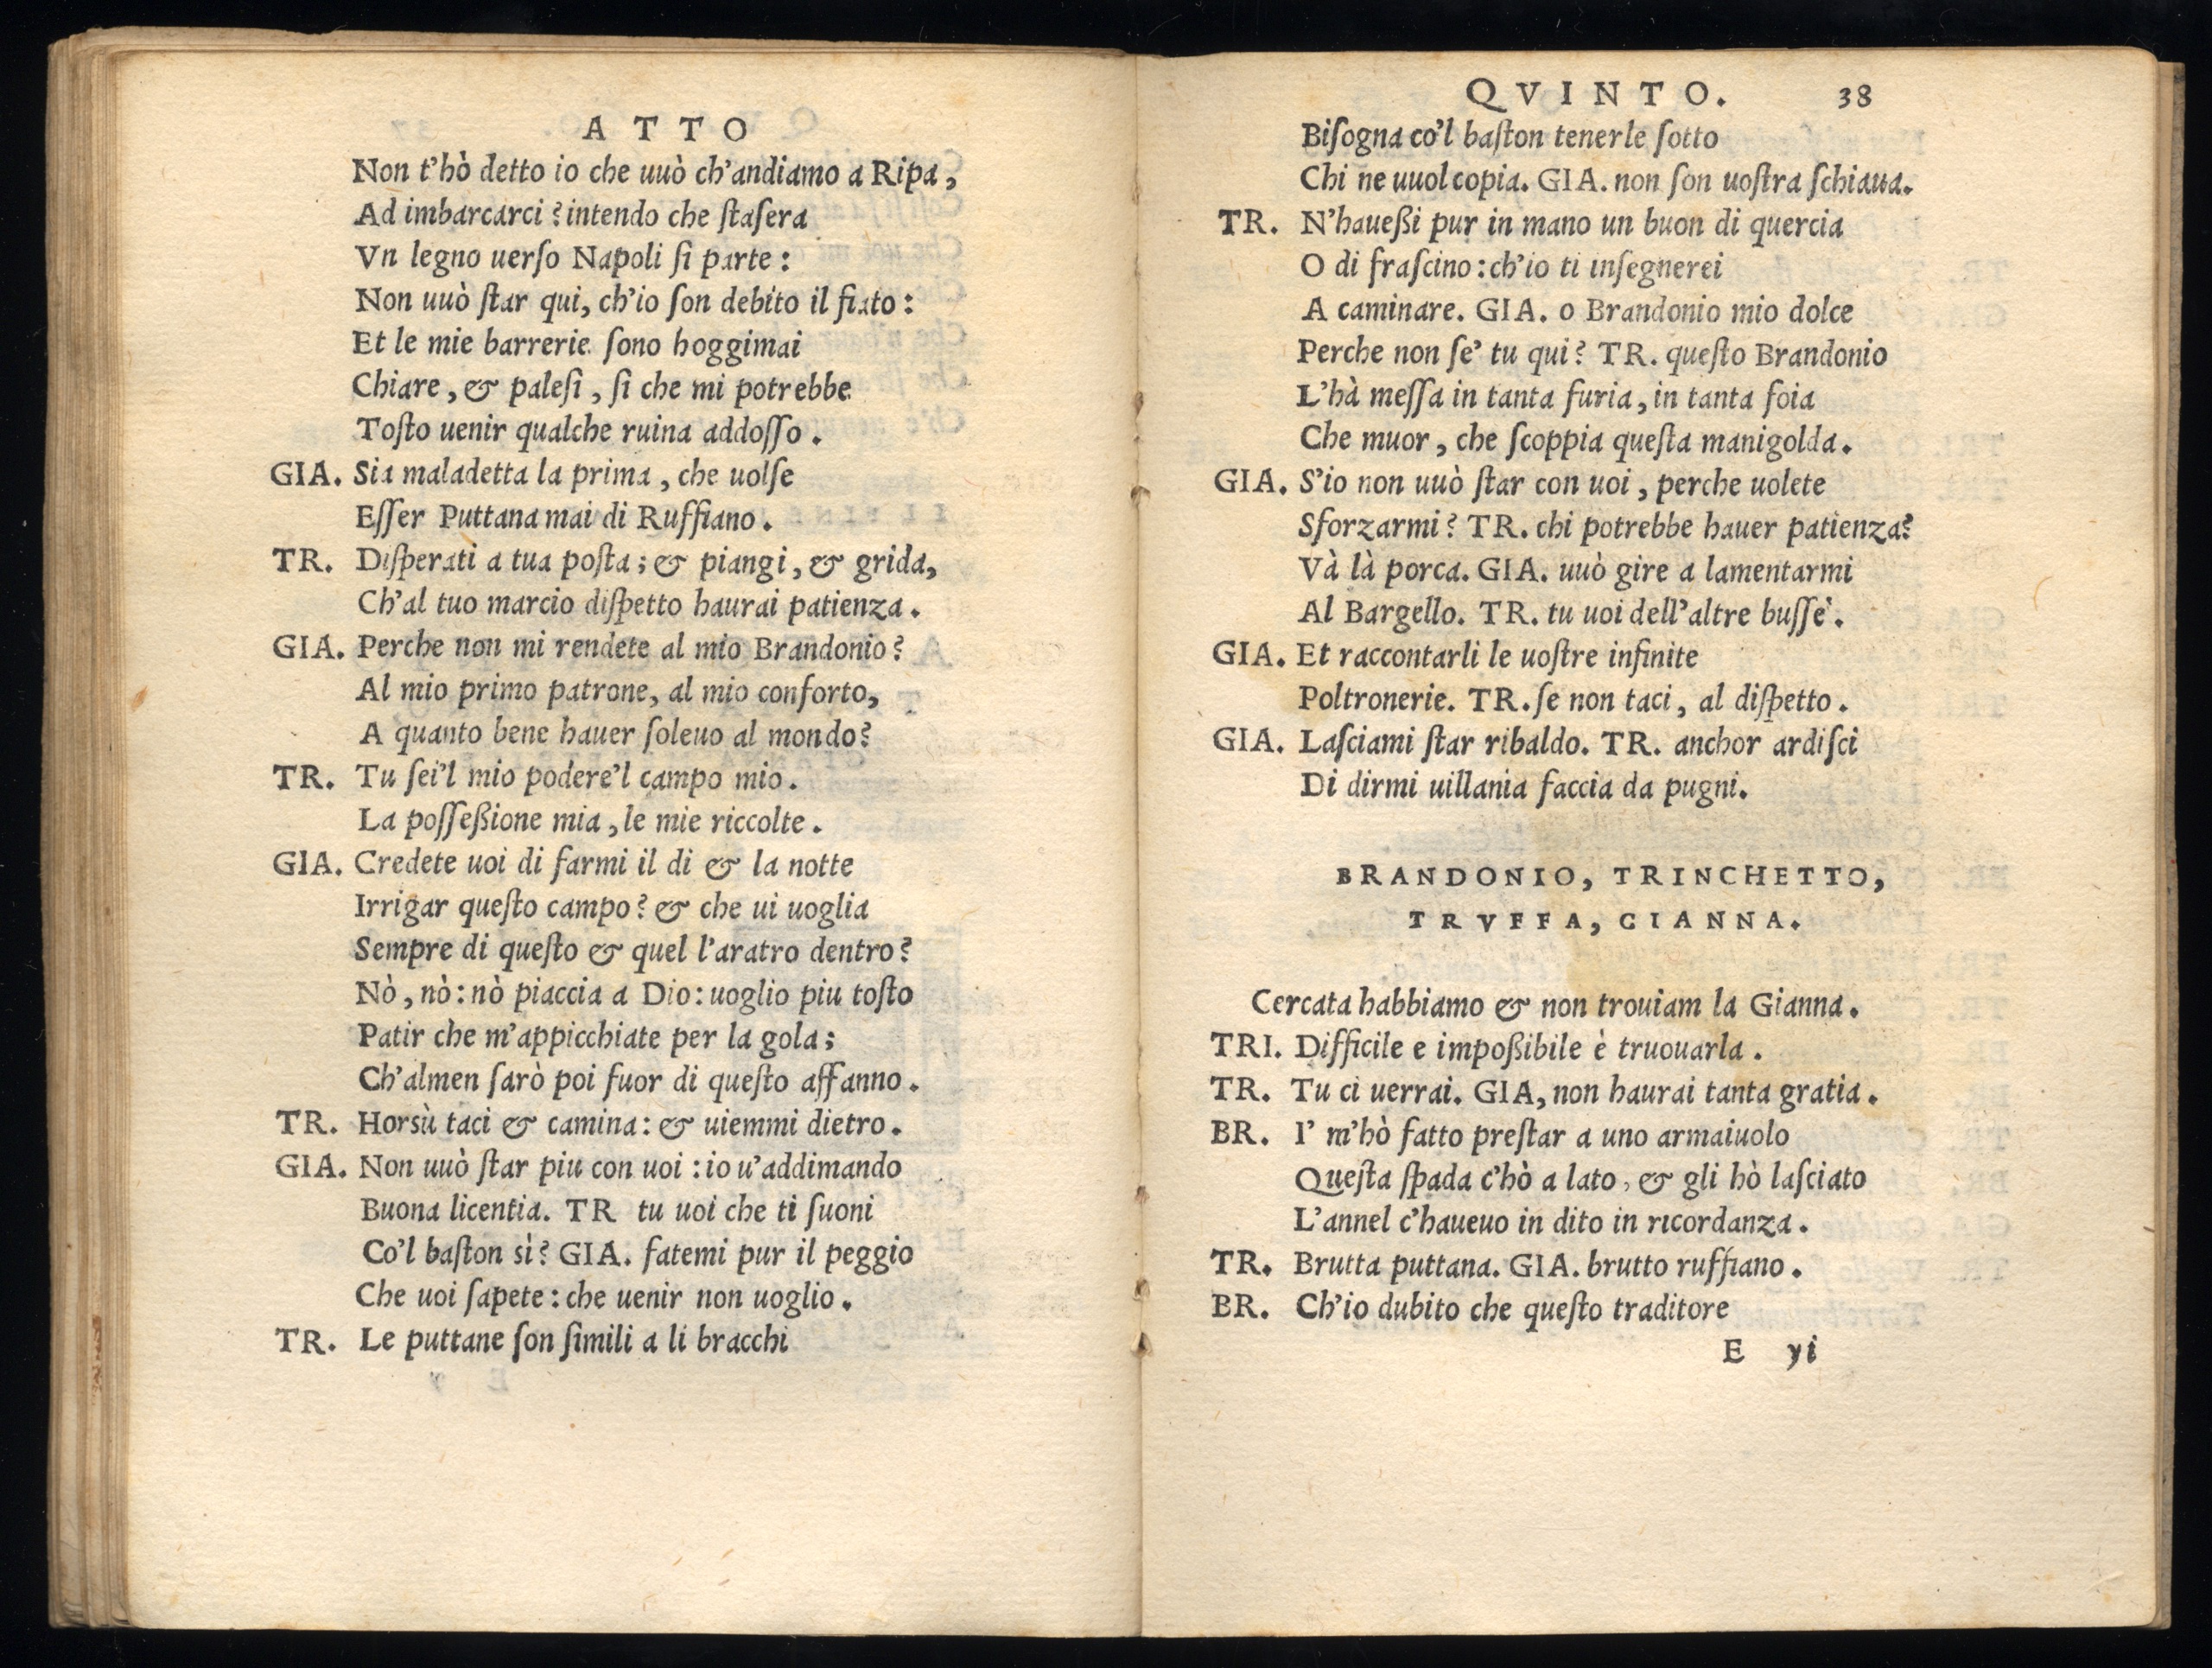 ATTO
Non t'hò detto io che uuò ch'andiamo a Ripa,
Ad imbarcarci? intendo che ſtaſera
Vn legno uerſo Napoli ſi parte:
Non uuò ſtar qui, ch'io ſon debito il fiato:
Et le mie barrerie ſono hoggimai
Chiare, & paleſi, ſi che mi potrebbe
Toſto uenir qualche ruina addoſſo.
GIA. Sia maladetta la prima, che uolſe
Eſſer Puttana mai di Ruffiano.
TR. Diſperati a tua poſta; & piangi, & grida,
Ch'al tuo marcio diſpetto haurai patienza.
GIA. Perche non mi rendete al mio Brandonio?
Al mio primo patrone, al mio conforto,
A quanto bene hauer ſoleuo al mondo?
TR. Tu ſei'l mio podere'l campo mio.
La poſſeßione mia, le mie riccolte.
GIA. Credete uoi di farmi il di & la notte
Irrigar queſto campo? & che ui uoglia
Sempre di queſto & quel l'aratro dentro?
Nò, nò: nò piaccia a Dio: uoglio piu toſto
Patir che m'appicchiate per la gola;
Ch'almen ſarò poi fuor di queſto affanno.
TR. Horsù taci & camina: & uiemmi dietro.
GIA. Non uuò ſtar piu con uoi: io u'addimando
Buona licentia. TR tu uoi che ti ſuoni
Co'l baſton sì? GIA. fatemi pur il peggio
Che uoi ſapete: che uenir non uoglio.
TR. Le puttane ſon ſimili a li bracchi
QVINTO. 38
Biſogna co'l baſton tenerle ſotto
Chi ne uuol copia. GIA. non ſon uoſtra ſchiaua.
TR. N'haueßi pur in mano un buon di quercia
O di fraſcino: ch'io ti inſegnerei
A caminare. GIA. o Brandonio mio dolce
Perche non ſe' tu qui? TR. queſto Brandonio
L'hà meſſa in tanta furia, in tanta foia
Che muor, che ſcoppia queſta manigolda.
GIA. S'io non uuò ſtar con uoi, perche uolete
Sforzarmi? TR. chi potrebbe hauer patienza?
Và là porca. GIA. uuò gire a lamentarmi
Al Bargello. TR. tu uoi dell'altre buſſe.
GIA. Et raccontarli le uoſtre infinite
Poltronerie. TR. ſe non taci, al diſpetto.
GIA. Laſciami ſtar ribaldo. TR. anchor ardiſci
Di dirmi uillania faccia da pugni.
BRANDONIO, TRINCHETTO,
TRVFFA, GIANNA.
Cercata habbiamo & non trouiam la Gianna.
TRI. Difficile e impoßibile è truouarla.
TR. Tu ci uerrai. GIA, non haurai tanta gratia.
BR. I' m'hò fatto preſtar a uno armaiuolo
Queſta ſpada c'hò a lato, & gli hò laſciato
L'annel c'haueuo in dito in ricordanza.
TR. Brutta puttana. GIA. brutto ruffiano.
BR. Ch'io dubito che queſto traditore
E yi